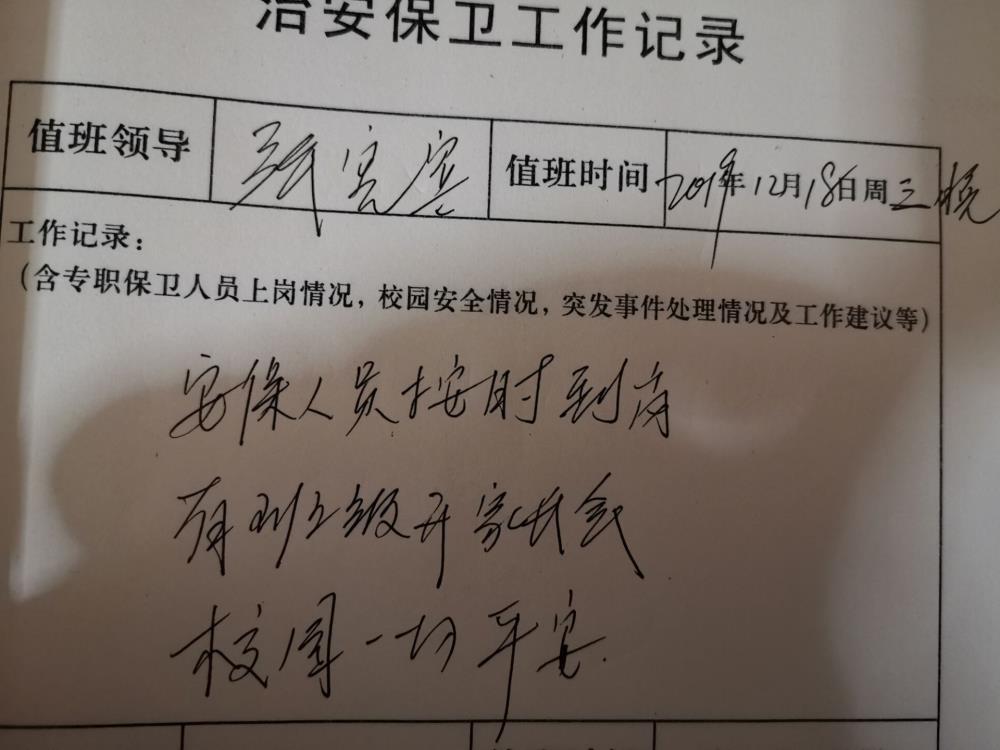 治安保卫工作记录
值班领导 值班时间 2019年12月18日周三晚
工作记录：
（含专职保卫人员上岗情况，校园安全情况，突发事件处理情况及工作建议等）
安保人员按时到岗
有班级开家长会
校园一切平安.